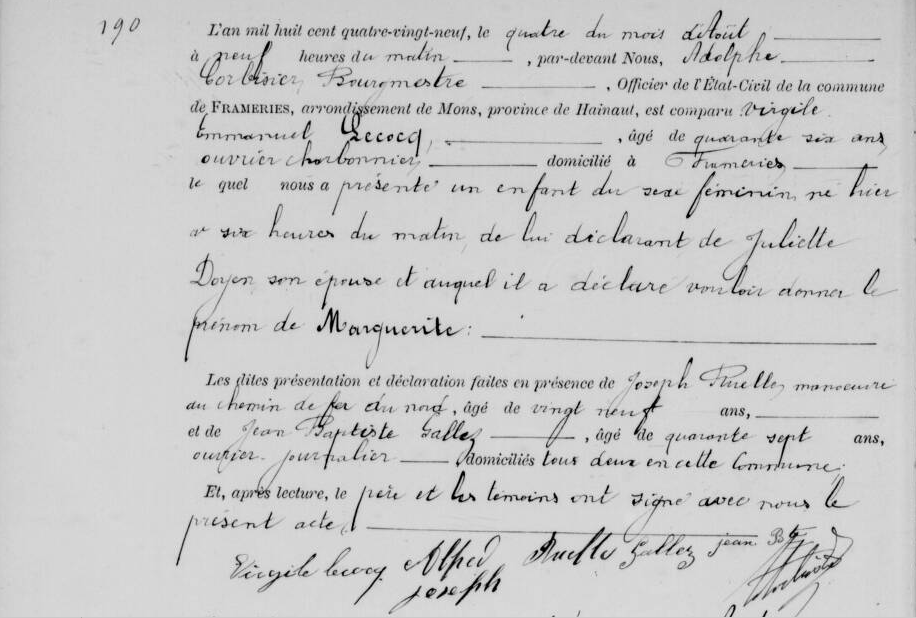 190
L'an mil huit cent quatre-vingt-neuf, le quatre du mois d'Août
à neuf heures du matin, par-devant Nous, Adolphe
Corbisier, Bourgmestre, Officier de l'État-Civil de la commune
de FRAMERIES, arrondissement de Mons, province de Hainaut, est comparu Virgile
Emmanuel Lecocq, âgé de quarante six ans,
ouvrier charbonnier, domicilié à Frameries,
le quel nous a présenté un enfant du sexe féminin, né hier
à six heures du matin, de lui déclarant de Juliette
Doyen, son épouse et auquel il a déclaré vouloir donner le
prénom de Marguerite:
Les dites présentation et déclaration faites en présence de Joseph Ruelle, manoeuvre
au chemin de fer du nord, âgé de vingt neuf ans,
et de Jean Baptiste Gallez, âgé de quarante sept ans,
ouvrier journalier, domiciliés tous deux en cette Commune;
Et, après lecture, le père et les témoins ont signé avec nous le
présent acte,
Virgile lecocq Alfred Ruelle Gallez jean Bte
joseph